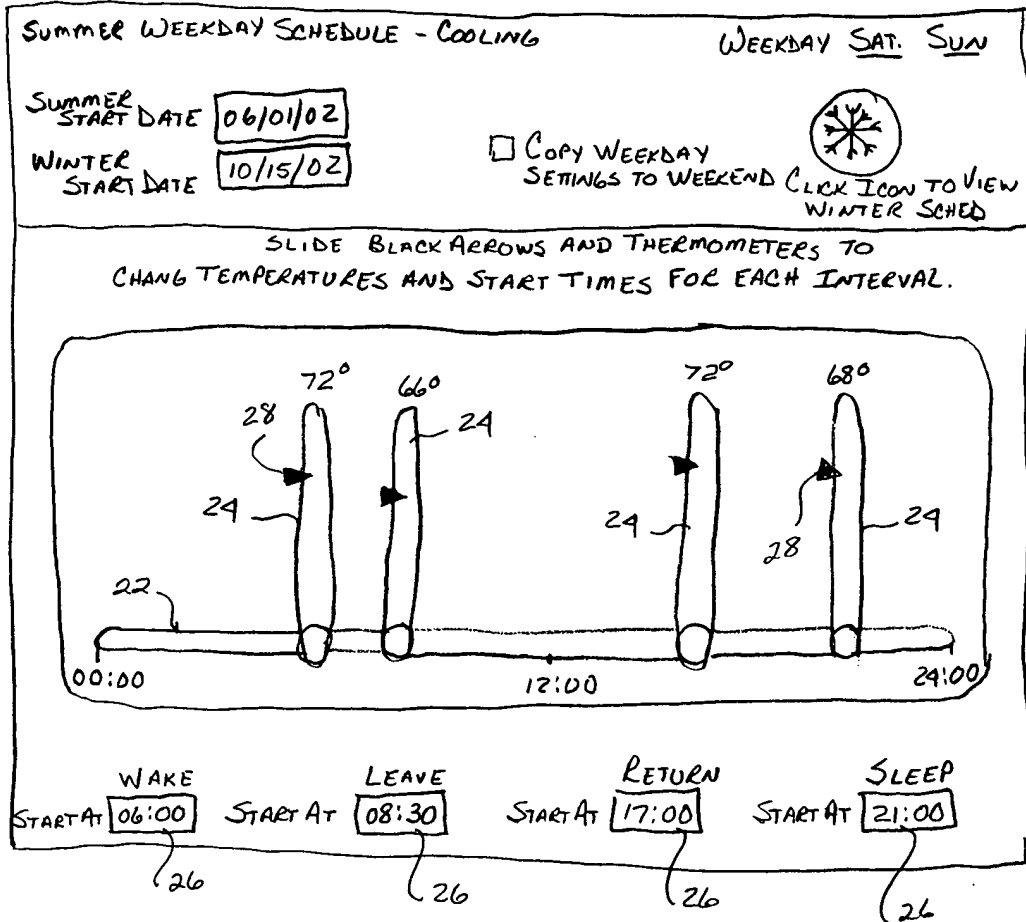 SUMMER WEEKDAY SCHEDULE - COOLING
WEEKDAY SAT. SUN
SUMMER
START DATE 06/01/02
WINTER
START DATE 10/15/02
COPY WEEKDAY
SETTINGS TO WEEKEND
CLICK ICON TO VIEW
WINTER SCHED
SLIDE BLACK ARROWS AND THERMOMETERS TO
CHANG TEMPERATURES AND START TIMES FOR EACH INTERVAL.
72° 66° 72° 68°
28 24
24 24 28 24
22
00:00 12:00 24:00
WAKE LEAVE RETURN SLEEP
START AT 06:00 START AT 08:30 START AT 17:00 START AT 21:00
26 26 26 26